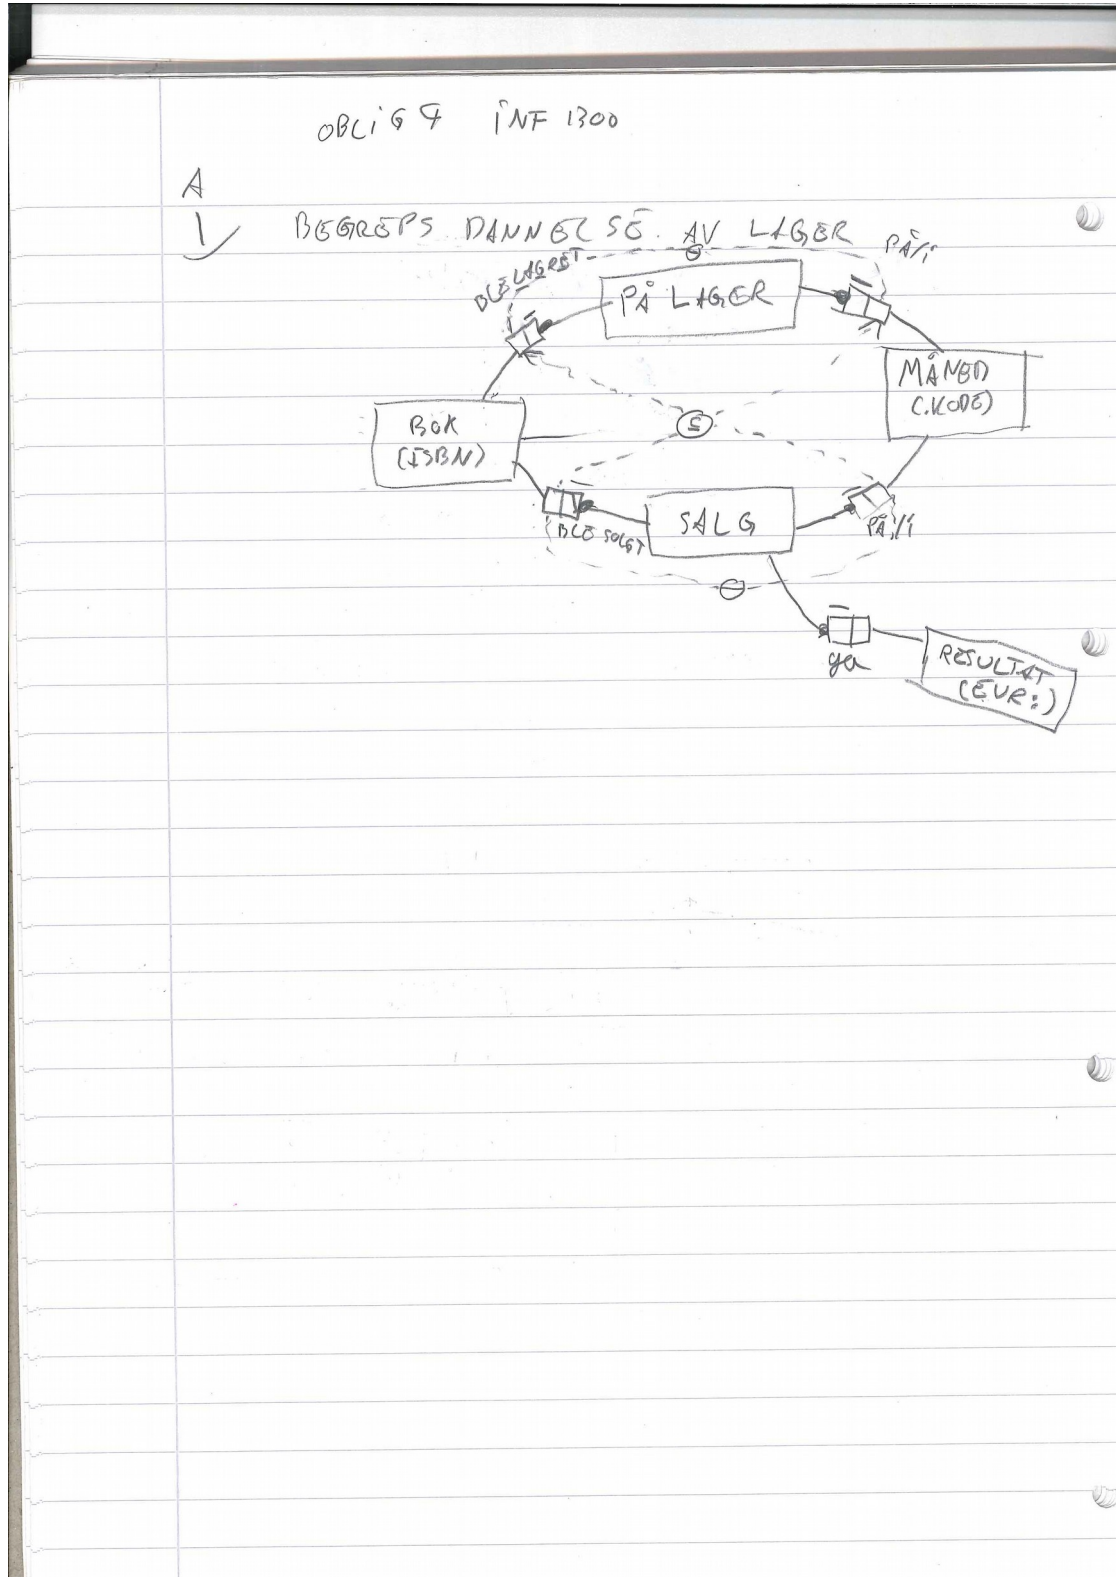 OBLiG 4 iNF 1300
A
1
BEGREPS DANNELSE AV LAGER
BLE LAGRET
PÅ/i
PÅ LAGER
MÅNED
(.KODE)
BOK
(ISBN)
SALG
BLE SOLGT
PÅ/i
ga
RESULTAT
(EUR:)